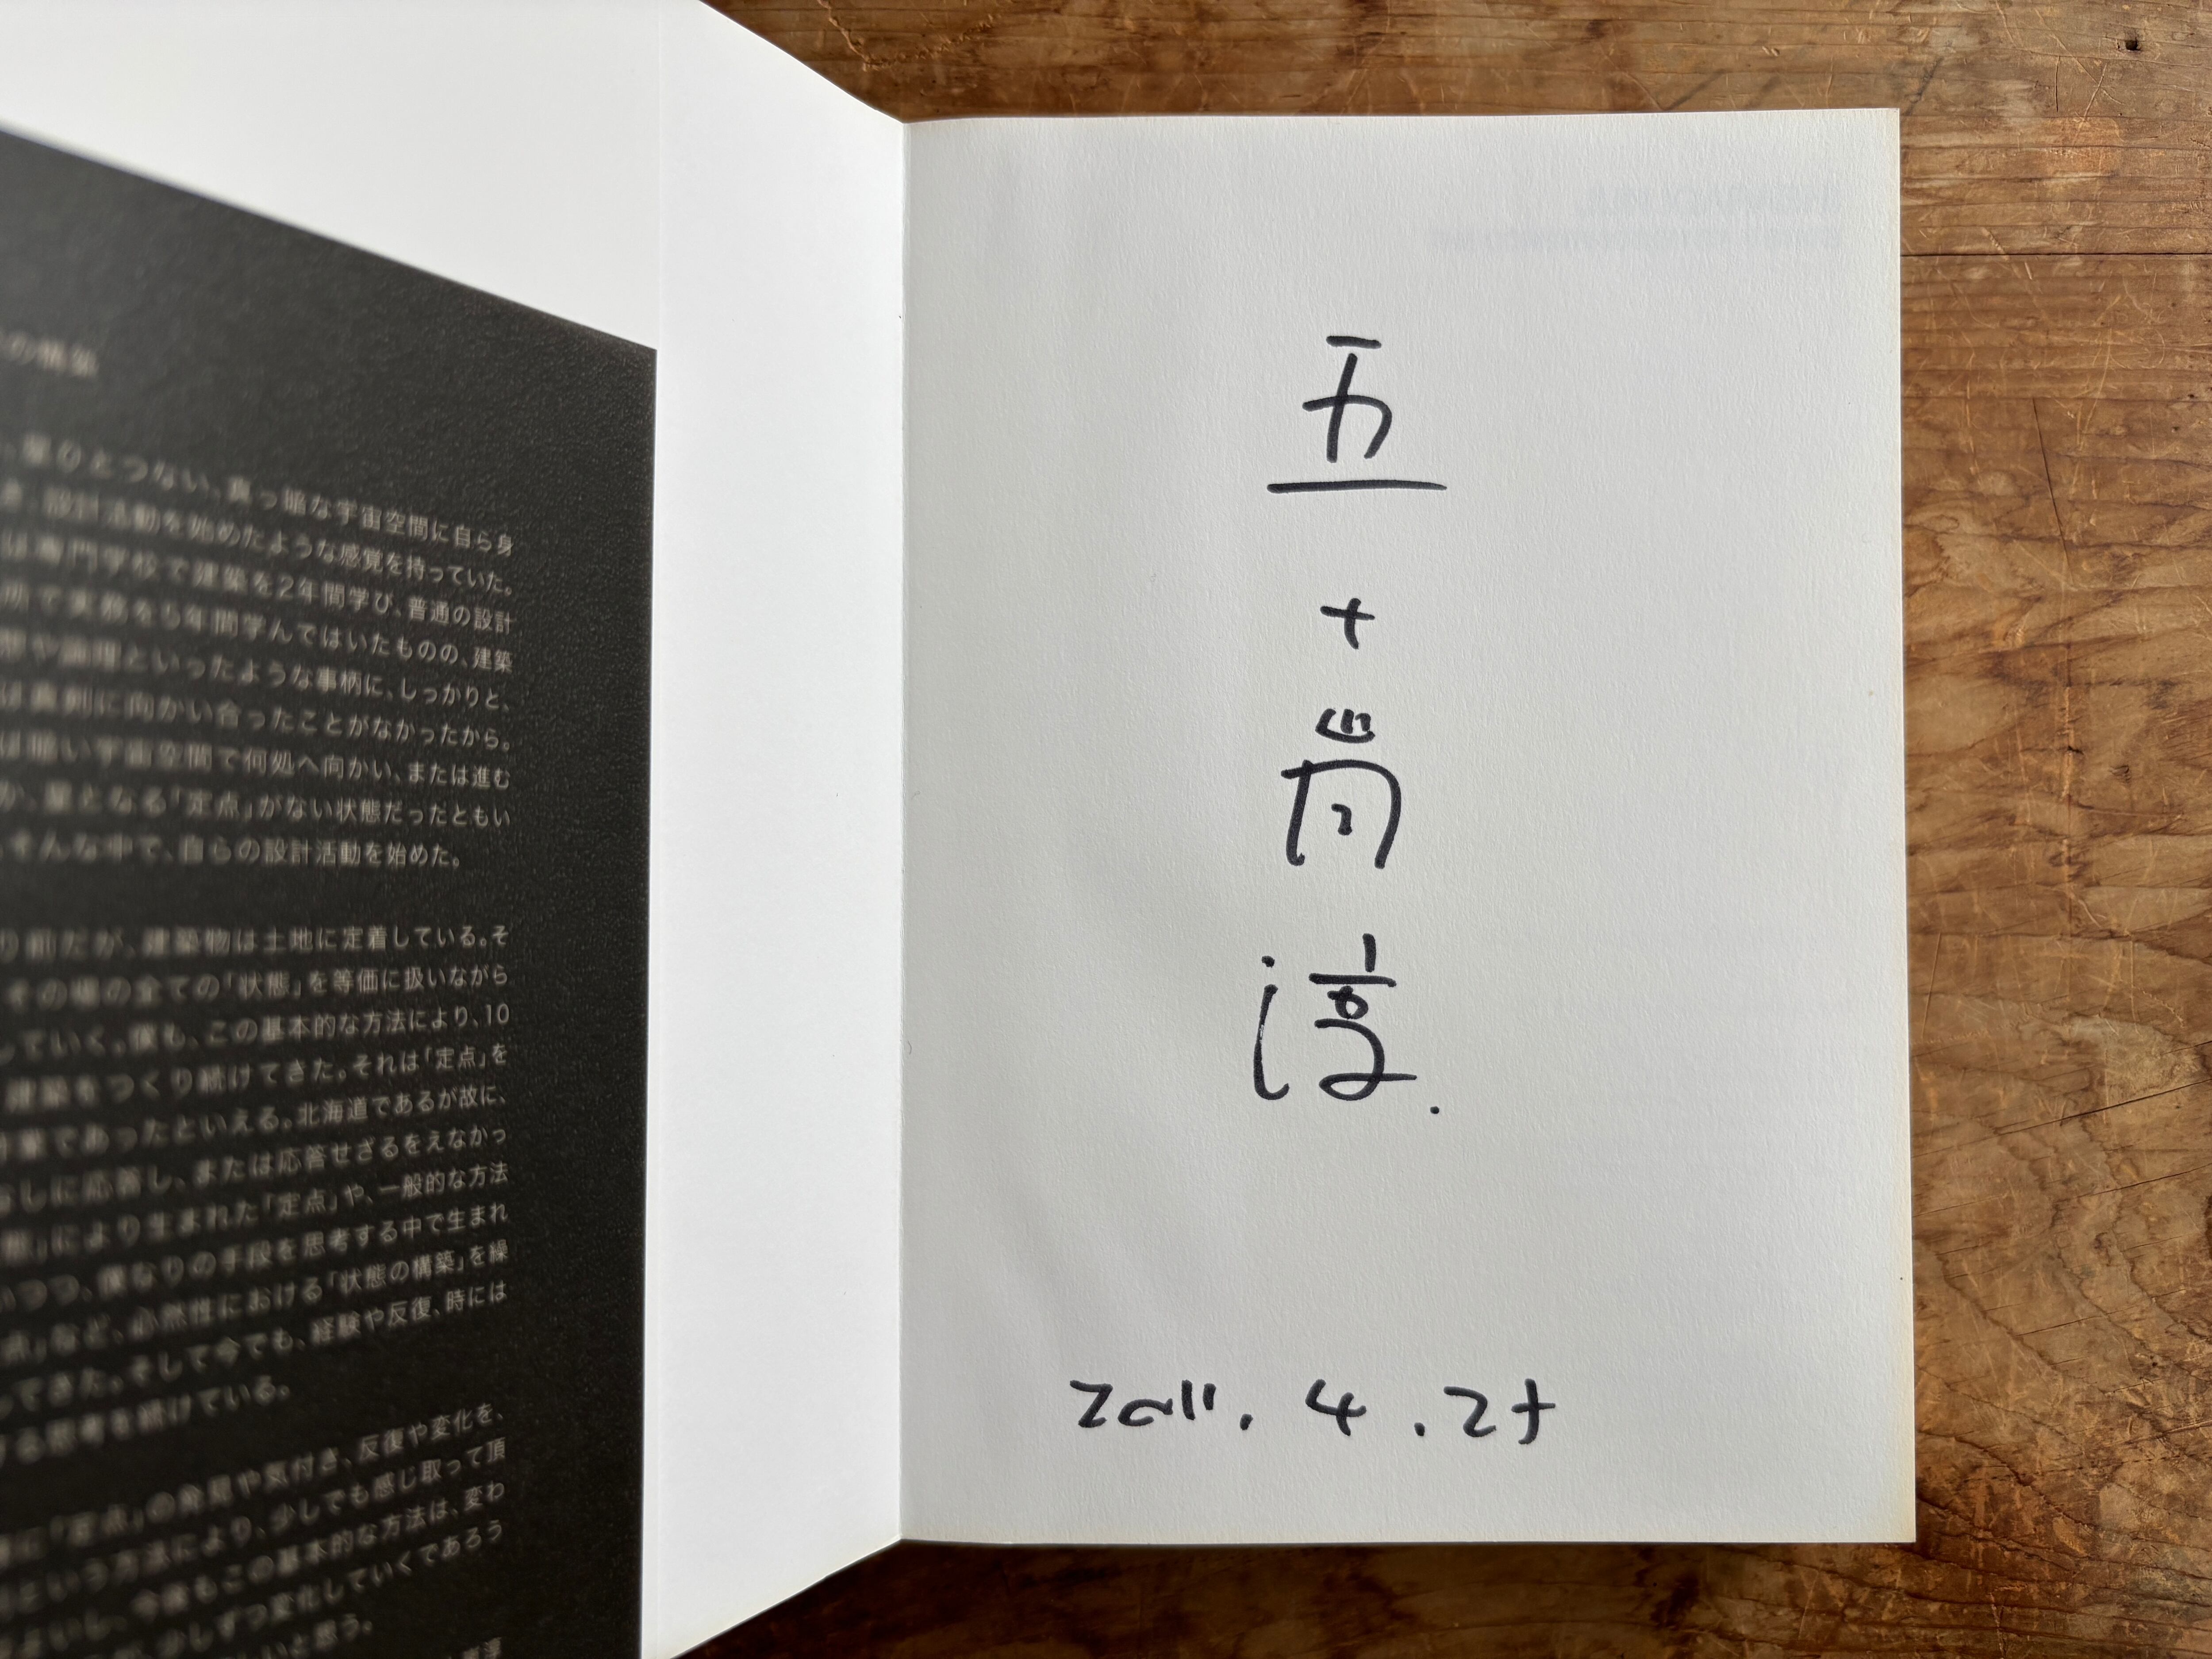 の構築
星ひとつない、真っ暗な宇宙空間に自ら身
設計活動を始めたような感覚を持っていた。
は専門学校で建築を2年間学び、普通の設計
所で実務を5年間学んではいたものの、建築
や論理といったような事柄に、しっかりと、
は真剣に向かい合ったことがなかったから。
ば暗い宇宙空間で何処へ向かい、または進む
か、星となる「定点」がない状態だったともい
そんな中で、自らの設計活動を始めた。
り前だが、建築物は土地に定着している。そ
その場の全ての「状態」を等価に扱いながら
していく。僕も、この基本的な方法により、10
建築をつくり続けてきた。それは「定点」を
作業であったといえる。北海道であるが故に、
なしに応答し、または応答せざるをえなかっ
態」により生まれた「定点」や、一般的な方法
いつつ、僕なりの手段を思考する中で生まれ
点」など、必然性における「状態の構築」を繰
ってきた。そして今でも、経験や反復、時には
る思考を続けている。
に「定点」の発見や気付き、反復や変化を、
という方法により、少しでも感じ取って頂
よいし、今後もこの基本的な方法は、変わ
少しずつ変化していくであろう
いと思う。
五十嵐淳.
2011. 4 .